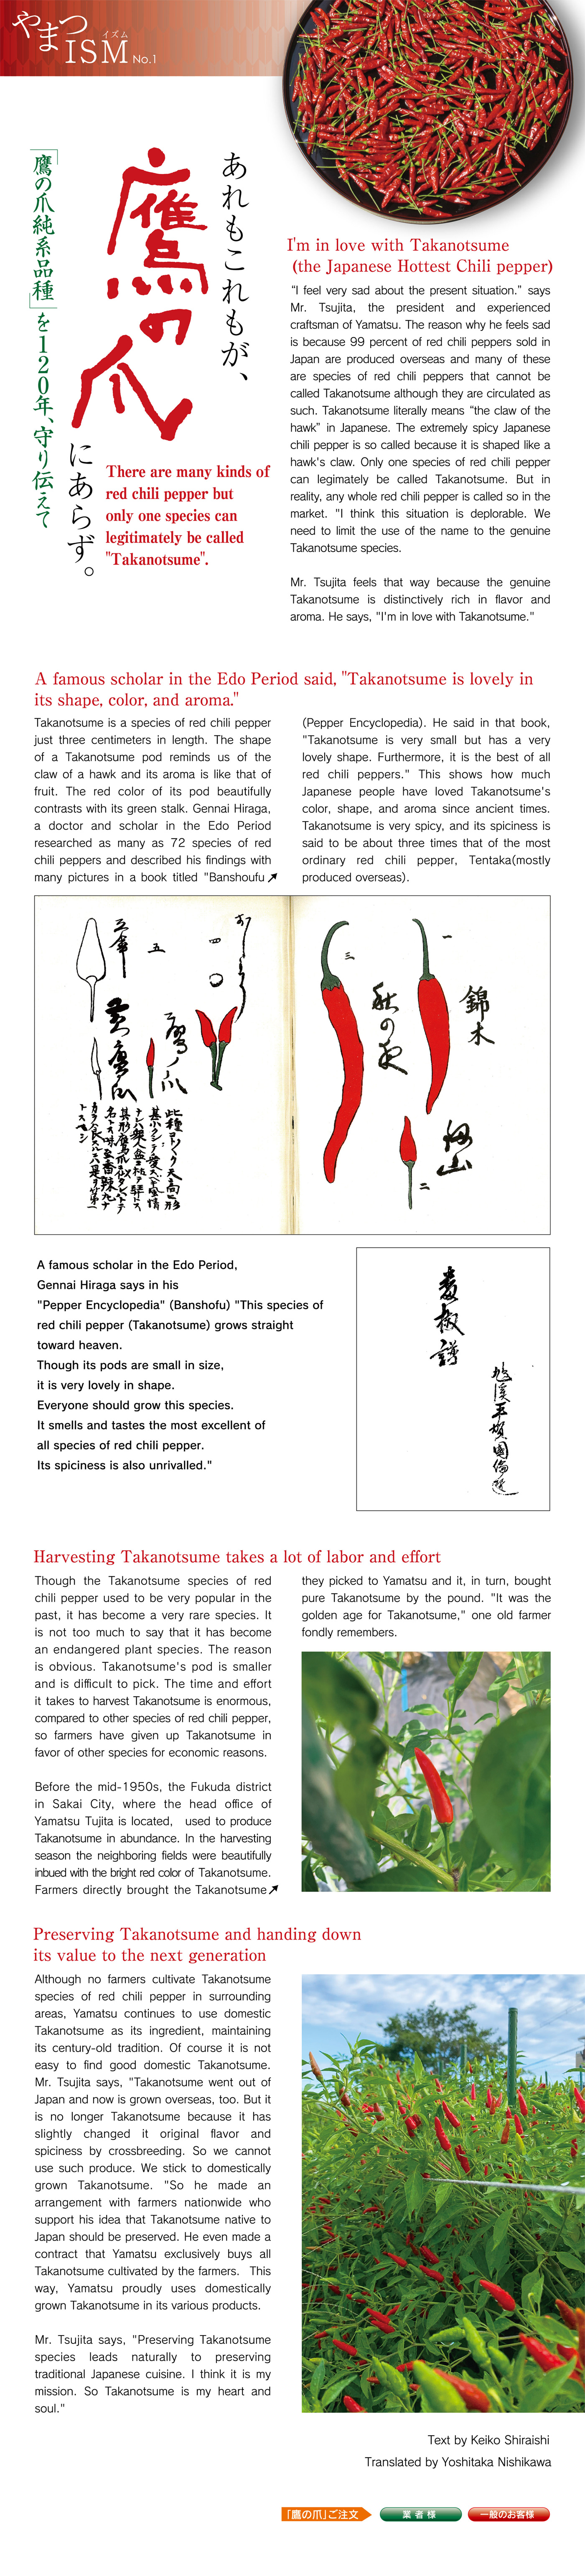 やまつ
イズム
ISM No.1
あれもこれもが、
鷹の爪
にあらず。
「鷹の爪純系品種」を120年、守り伝えて
There are many kinds of
red chili pepper but
only one species can
legitimately be called
"Takanotsume".
I'm in love with Takanotsume
(the Japanese Hottest Chili pepper)
“I feel very sad about the present situation.” says
Mr. Tsujita, the president and experienced
craftsman of Yamatsu. The reason why he feels sad
is because 99 percent of red chili peppers sold in
Japan are produced overseas and many of these
are species of red chili peppers that cannot be
called Takanotsume although they are circulated as
such. Takanotsume literally means “the claw of the
hawk” in Japanese. The extremely spicy Japanese
chili pepper is so called because it is shaped like a
hawk's claw. Only one species of red chili pepper
can legimately be called Takanotsume. But in
reality, any whole red chili pepper is called so in the
market. "I think this situation is deplorable. We
need to limit the use of the name to the genuine
Takanotsume species.
Mr. Tsujita feels that way because the genuine
Takanotsume is distinctively rich in flavor and
aroma. He says, "I'm in love with Takanotsume."
A famous scholar in the Edo Period said, "Takanotsume is lovely in
its shape, color, and aroma."
Takanotsume is a species of red chili pepper
just three centimeters in length. The shape
of a Takanotsume pod reminds us of the
claw of a hawk and its aroma is like that of
fruit. The red color of its pod beautifully
contrasts with its green stalk. Gennai Hiraga,
a doctor and scholar in the Edo Period
researched as many as 72 species of red
chili peppers and described his findings with
many pictures in a book titled "Banshoufu
(Pepper Encyclopedia). He said in that book,
"Takanotsume is very small but has a very
lovely shape. Furthermore, it is the best of all
red chili peppers." This shows how much
Japanese people have loved Takanotsume's
color, shape, and aroma since ancient times.
Takanotsume is very spicy, and its spiciness is
said to be about three times that of the most
ordinary red chili pepper, Tentaka(mostly
produced overseas).
一
錦木
二
三
秋の夜
四
鷹ノ爪
五
A famous scholar in the Edo Period,
Gennai Hiraga says in his
"Pepper Encyclopedia" (Banshofu) "This species of
red chili pepper (Takanotsume) grows straight
toward heaven.
Though its pods are small in size,
it is very lovely in shape.
Everyone should grow this species.
It smells and tastes the most excellent of
all species of red chili pepper.
Its spiciness is also unrivalled."
番椒譜
Harvesting Takanotsume takes a lot of labor and effort
Though the Takanotsume species of red
chili pepper used to be very popular in the
past, it has become a very rare species. It
is not too much to say that it has become
an endangered plant species. The reason
is obvious. Takanotsume's pod is smaller
and is difficult to pick. The time and effort
it takes to harvest Takanotsume is enormous,
compared to other species of red chili pepper,
so farmers have given up Takanotsume in
favor of other species for economic reasons.
Before the mid-1950s, the Fukuda district
in Sakai City, where the head office of
Yamatsu Tujita is located, used to produce
Takanotsume in abundance. In the harvesting
season the neighboring fields were beautifully
inbued with the bright red color of Takanotsume.
Farmers directly brought the Takanotsume
they picked to Yamatsu and it, in turn, bought
pure Takanotsume by the pound. "It was the
golden age for Takanotsume," one old farmer
fondly remembers.
Preserving Takanotsume and handing down
its value to the next generation
Although no farmers cultivate Takanotsume
species of red chili pepper in surrounding
areas, Yamatsu continues to use domestic
Takanotsume as its ingredient, maintaining
its century-old tradition. Of course it is not
easy to find good domestic Takanotsume.
Mr. Tsujita says, "Takanotsume went out of
Japan and now is grown overseas, too. But it
is no longer Takanotsume because it has
slightly changed it original flavor and
spiciness by crossbreeding. So we cannot
use such produce. We stick to domestically
grown Takanotsume. "So he made an
arrangement with farmers nationwide who
support his idea that Takanotsume native to
Japan should be preserved. He even made a
contract that Yamatsu exclusively buys all
Takanotsume cultivated by the farmers. This
way, Yamatsu proudly uses domestically
grown Takanotsume in its various products.
Mr. Tsujita says, "Preserving Takanotsume
species leads naturally to preserving
traditional Japanese cuisine. I think it is my
mission. So Takanotsume is my heart and
soul."
Text by Keiko Shiraishi
Translated by Yoshitaka Nishikawa
「鷹の爪」ご注文
業者様
一般のお客様